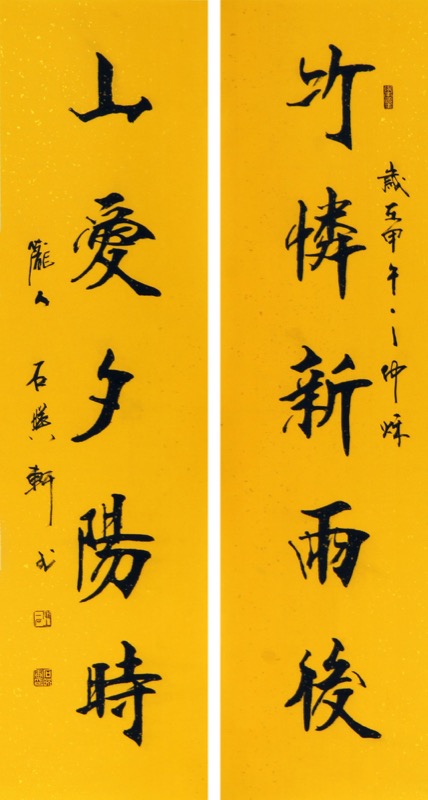 歲在甲午仲秌
竹憐新雨後
山愛夕陽時
石興軒書